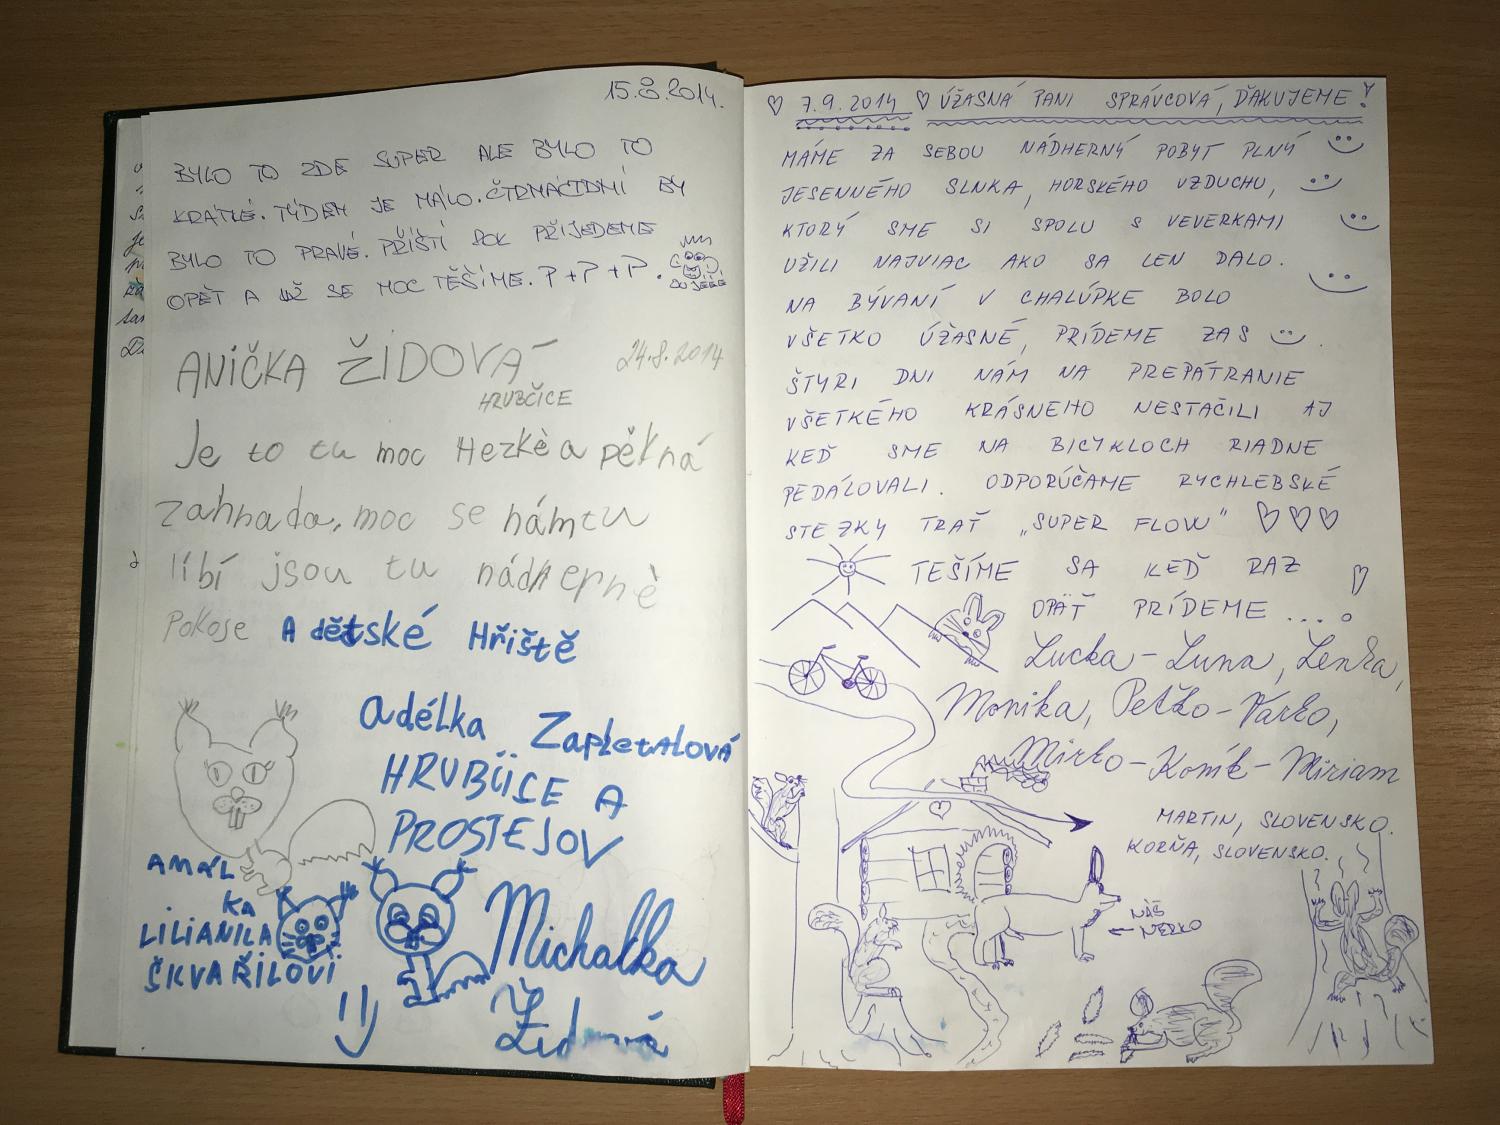 15.8.2014.
BYLO TO ZDE SUPER ALE BYLO TO
KRÁTKÉ. TÝDEN JE MÁLO. ČTRNÁCTDNÍ BY
BYLO TO PRAVÉ. PŘÍŠTÍ ROK PŘIJEDEME
OPĚT A UŽ SE MOC TĚŠÍME. P+P+P.
ANIČKA ŽIDOVÁ 24.8.2014
HRUBČICE
Je to tu moc Hezkè a pěkná
zahhada, moc se námtu
líbí jsou tu nádhernè
Pokoje A dětské Hřiště
adélka Zapletalová
HRUBČICE A
PROSTEJOV
AMÁL
KA
LILIANILA
ŠKVAŘILOVI
Michalka
Židová
♡ 7.9.2014 ♡ ÚŽASNÁ PANI SPRÁVCOVÁ, ĎAKUJEME!
MÁME ZA SEBOU NÁDHERNÝ POBYT PLNÝ
JESENNÉHO SLNKA, HORSKÉHO VZDUCHU,
KTORÝ SME SI SPOLU S VEVERKAMI
UŽILI NAJVIAC AKO SA LEN DALO.
NA BÝVANÍ V CHALÚPKE BOLO
VŠETKO ÚŽASNÉ, PRÍDEME ZAS .
ŠTYRI DNI NÁM NA PREPÁTRANIE
VŠETKÉHO KRÁSNEHO NESTAČILI AJ
KEĎ SME NA BICYKLOCH RIADNE
PEDÁLOVALI. ODPORÚČAME RYCHLEBSKÉ
STEZKY TRAŤ „SUPER FLOW" ♡♡♡
TEŠÍME SA KEĎ RAZ
OPÄŤ PRÍDEME ...!
Lucka - Luna, Lenka,
Monika, Peťko - Varko,
Mirko - Koník - Miriam
MARTIN, SLOVENSKO.
KORŇA, SLOVENSKO.
NÁŠ
NERKO